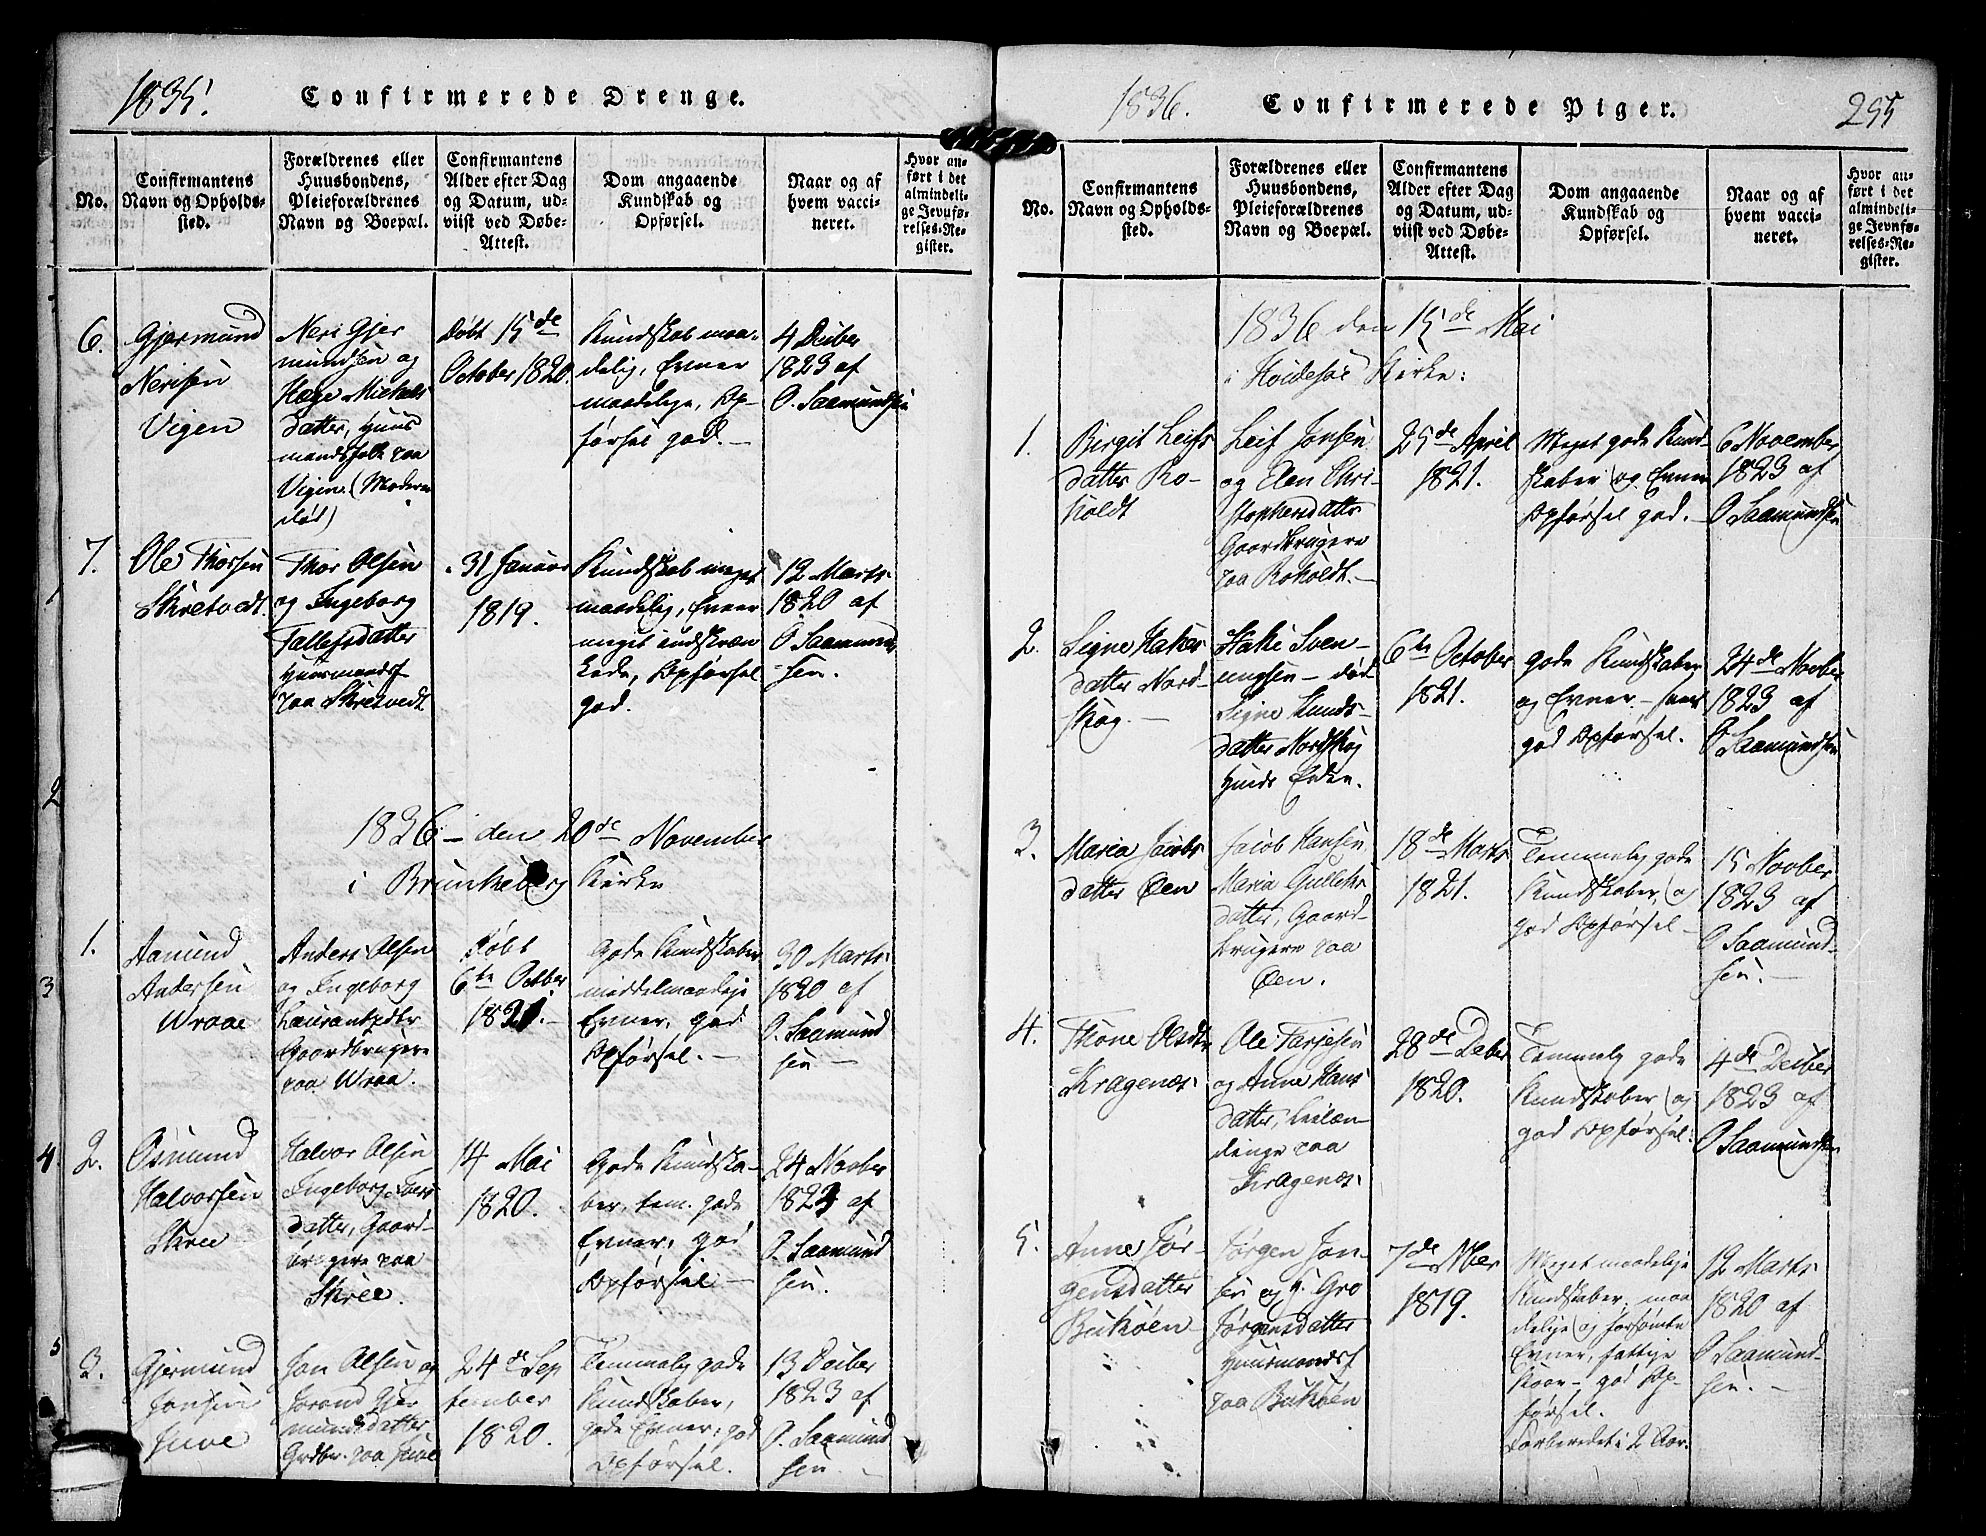 1835.
Confirmerede Drenge.
No.
Confirmantens
Navn og Opholds-
sted.
Forældrenes eller
Huusbondens,
Pleieforældrenes
Navn og Boepæl.
Confirmantens
Alder efter Dag
og Datum, ud-
viist ved Døbe-
Attest.
Dom angaaende
Kundskab og
Opførsel.
Naar og af
hvem vacci-
neret.
Hvor an-
ført i det
almindeli-
ge Jevnfø-
relses-Re-
gister.
6.
Gjermund
Nerisen
Vigen
Neri Gjer
mundsen og
Hæge Mickels
datter, Huus
mandsfolk paa
Vigen. (Moderen
død)
Døbt 15de
October 1820.
Kundskab maa-
delig, Evner
maadelige, Op-
førsel god. -
4 Deciber
1823 af
O. Saamundsen
7.
Ole Thorsen
Skretvedt.
Thor Olsen
og Ingeborg
Tallefsdatter
Huusmandsf
paa Skretvedt
31 Januar
1819.
Kundskab meget
maadelig, Evner
meget indskræn
kede, Opførsel
god.
12 Marts
1820 af
O. Saamund
-sen.
1836 - den 20de November
i Brunkeberg Kirke
1.
Aamund
Andersen
Wraae
Anders Olsen
og Ingeborg
Laurantzdtr
Gaardbrugere
paa Wraa.
Døbt
6te October
1821. -
Gode Kundskaber
middelmaadige
Evner, god
Opførsel. -
30 Marts
1820 af
O. Saamund
sen -
2.
Osmund
Halvorsen
Skree
Halvor Olsen
Ingeborg Ivers
datter, Gaard-
brugere paa
Skree.
14 Mai
1820.
Gode Kundska-
ber, tem. gode
Evner, god
Opførsel -
24 Novber
1823 af
O. Saamund
sen.
3.
Gjermund
Jonsen
Juve
Jon Olsen og
Jorand Gjer
mundsdatter
Grdbr. paa Juve
24de Sep
tember
1820.
Temmelig gode
Kundskaber,
gode Evner, god
Opførsel.
13 Deciber
1823 af
O. Saamund
sen. -
1836.
Confirmerede Piger.
255
No.
Confirmantens
Navn og Opholds-
sted.
Forældrenes eller
Huusbondens,
Pleieforældrenes
Navn og Boepæl.
Confirmantens
Alder efter Dag
og Datum, ud-
viist ved Døbe-
Attest.
Dom angaaende
Kundskab og
Opførsel.
Naar og af
hvem vacci-
neret.
Hvor an-
ført i det
almindeli-
ge Jevnfø-
relses-Re-
gister.
1836 den 15de Mai
i Hvideseie Kirke:
1.
Birgit Leifs
datter Ro-
holdt
Leif Jonsen
og Elen Chri-
stophersdatter
Gaardbrugere
paa Roholdt. -
25de April
1821.
Meget gode Kund-
skaber og Evner
Opførsel god. -
6 November
1823 af
O Saamundsen
2.
Signe Hakes
datter Nord-
skog. -
Hake Sven-
ungsen - død
Signe Lunds-
datter Nordskog
Huus Enke.
6te October
1821.
gode Kundskaber
og Evner - samt
god Opførsel.
24de Novber
1823 af
O Saamundsen
3.
Maria Jacobs
datter Øen
Jacob Hansen
Maria Gulleks
datter, Gaard-
brugere paa
Øen.
18de Marts
1821.
Temmelig gode
Kundskaber, og
god Opførsel -
15 Novber
1823 af
O Saamund-
sen. -
4.
Thone Olsdtr
Kragenæs
Ole Tarjesen
og Anne Hans
datter, Leilæn-
dinge paa
Kragenæs
28de Decber
1820.
Temmelig gode
Kundskaber og
god Opførsel.
4de Deciber
1823 af
O Saamundsen
5.
Anne Jør-
gensdatter
Bukøen
Jørgen Jon-
sen og H. Gro
Jørgensdatter
Huusmandsf
paa Bukøen
7de Nber
1819.
Meget maadelige
Kundskaber, maa
delige og forsømte
Evner, fattige
Kaar - god Op-
førsel.
Forberedet i 2 Aar.
12 Marts
1820 af
O Saamund-
sen. -